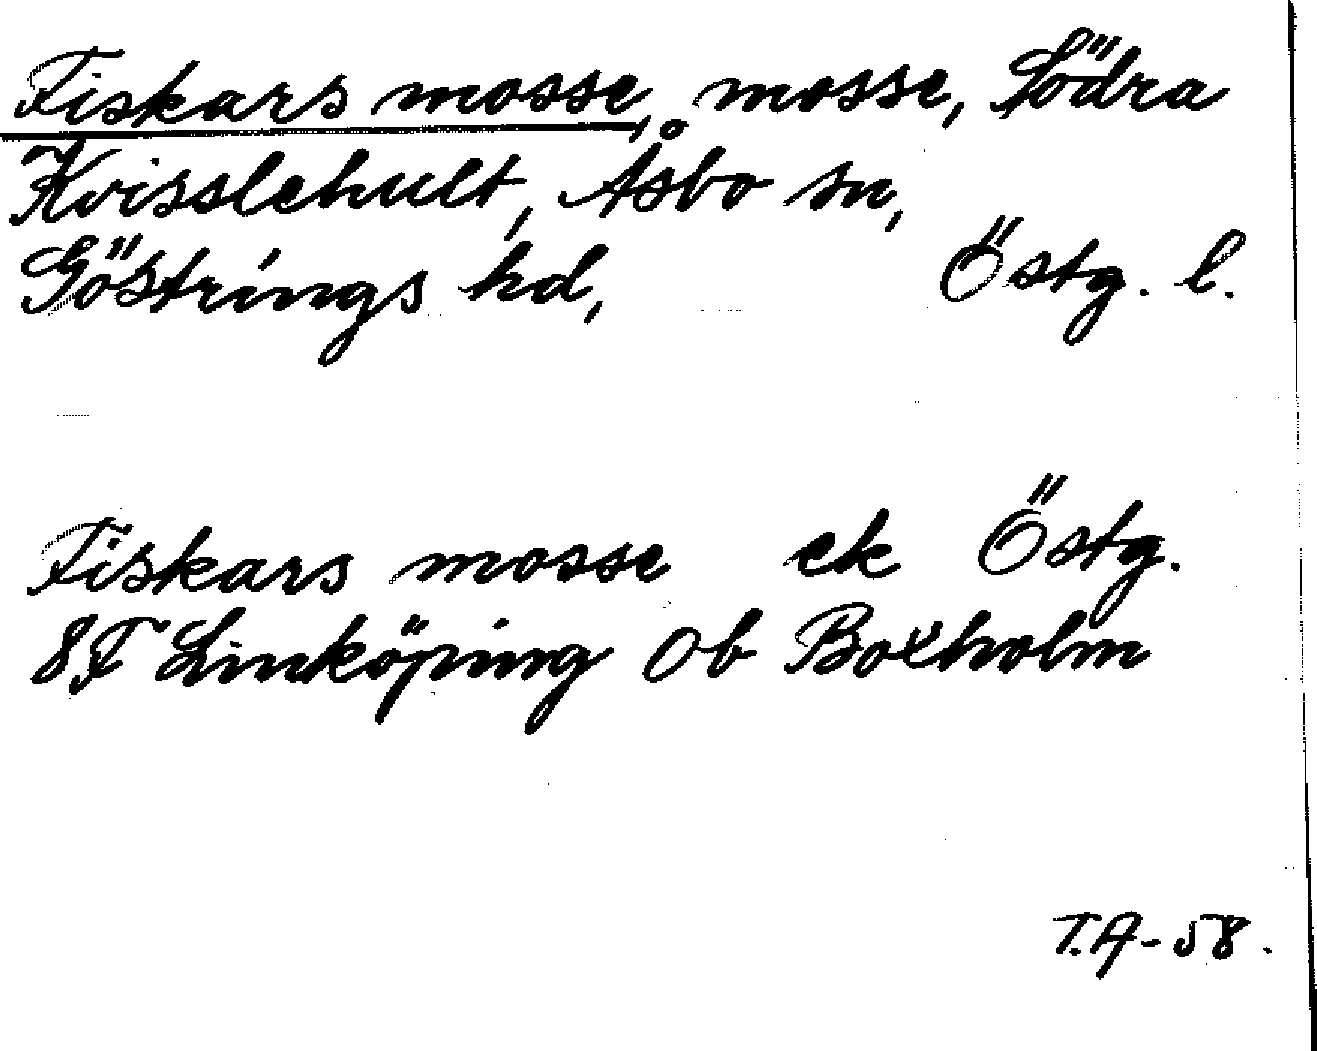 Fiskars mosse, mosse, Södra
Kvisslehult, Åsbo sn,
Göstrings hd, Östg. l.
Fiskars mosse ek Östg.
8F Linköping Ob Boxholm
T.A-58.